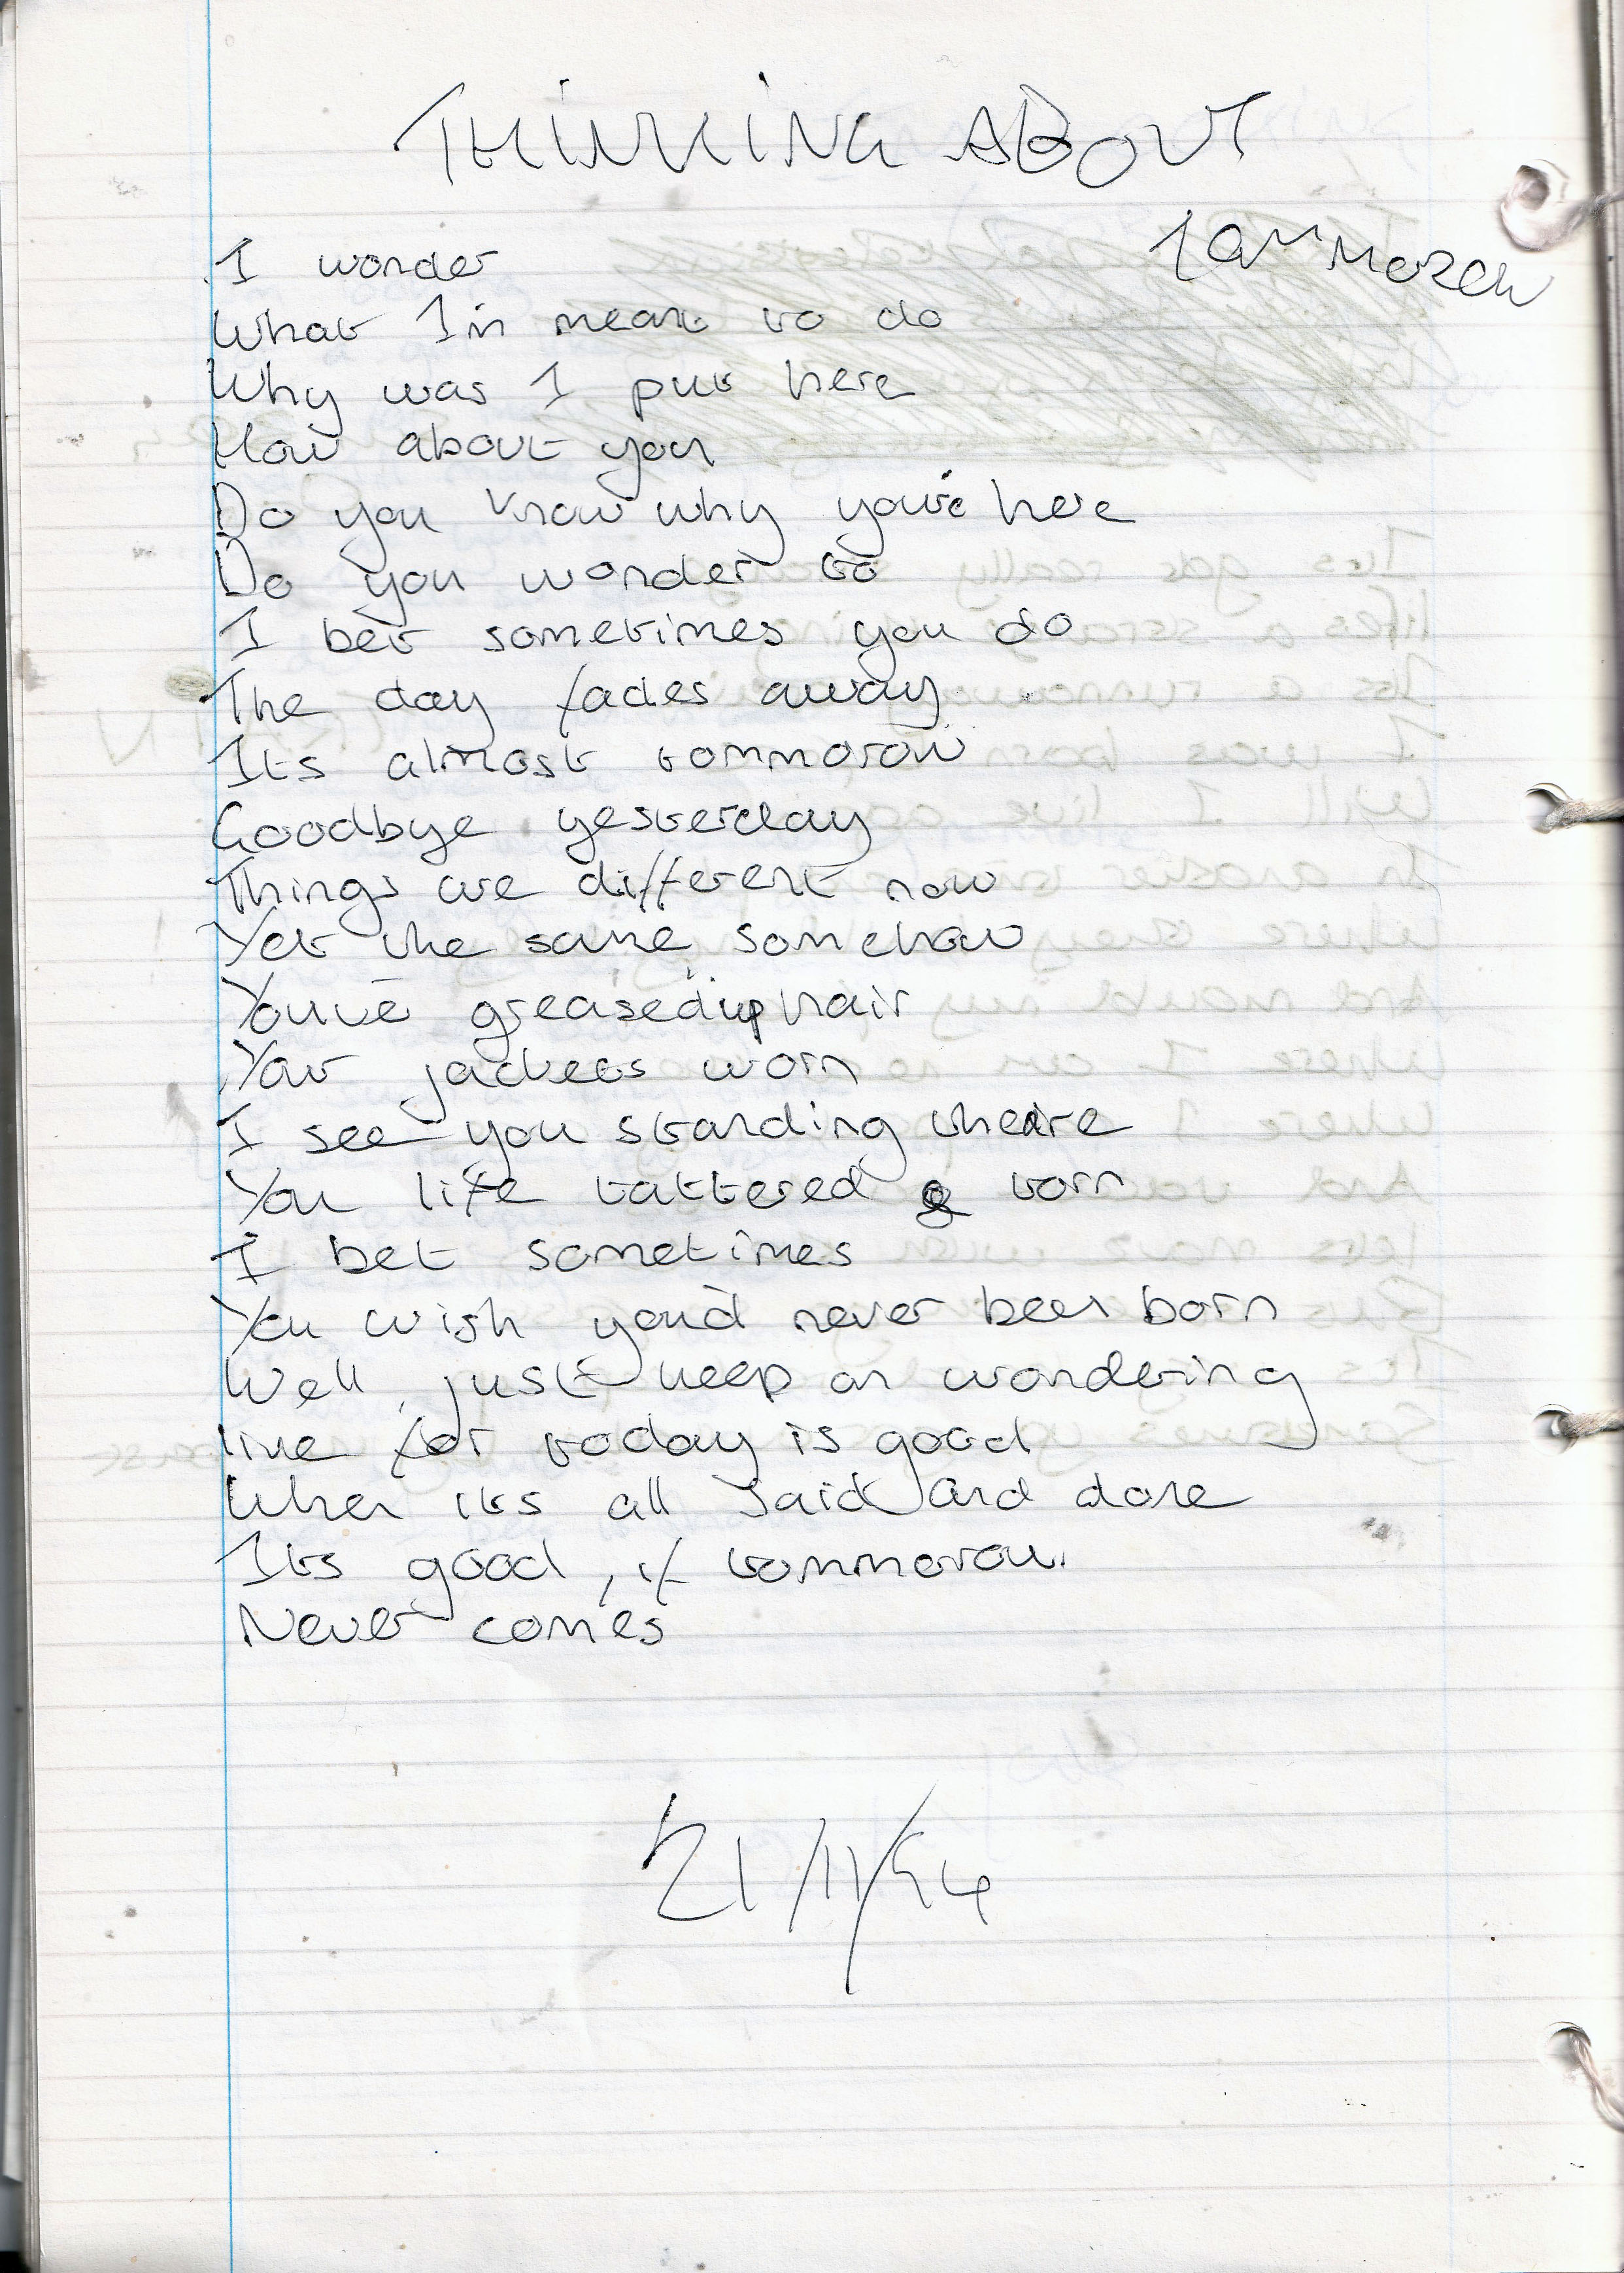 THINKING ABOUT
I wonder
What Im meant to do
Why was I put here
How about you
Do you know why you're here
Do you wonder to
I bet sometimes you do
The day fades away
Its almost tommorow
Goodbye yesterday
Things are different now
Yet the same somehow
You've greasedup hair
Your jackets worn
I see you standing there
You life tattered & torn
I bet sometimes
You wish you'd never been born
Well just keep on wondering
live for today is good
When its all said and done
Its good, if tommorow
Never comes
21/11/94